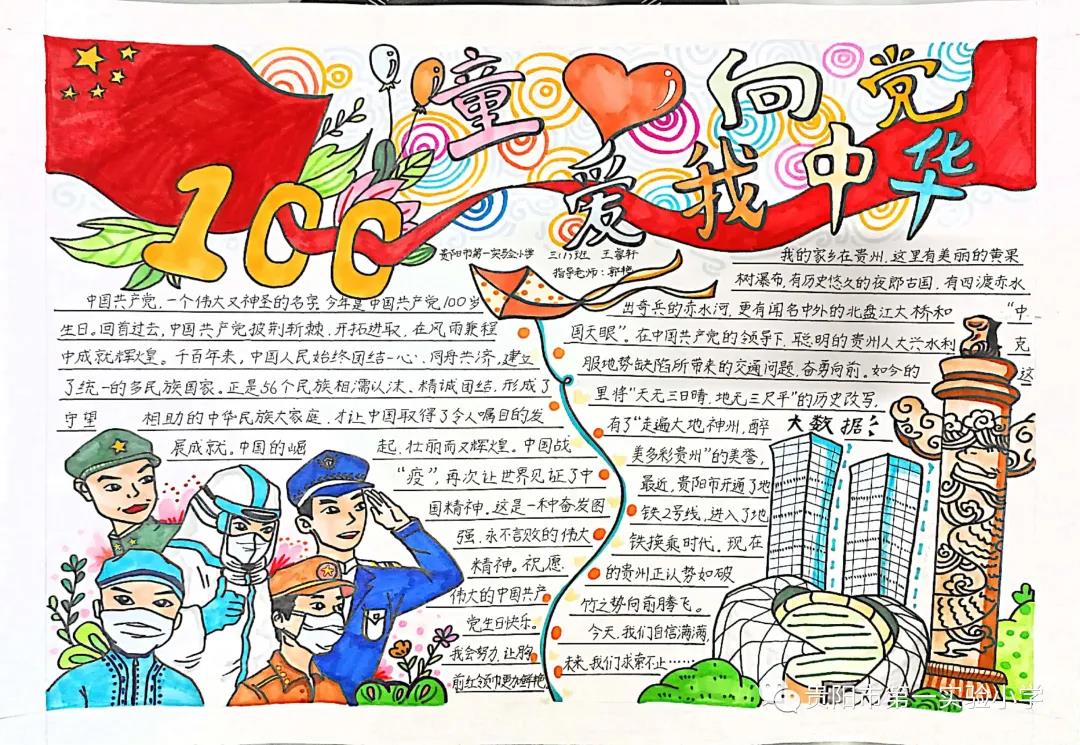 童 向党
100 爱我中华
贵阳市第一实验小学 三(1)班 王馨轩
指导老师：郭艳
中国共产党，一个伟大又神圣的名字，今年是中国共产党100岁
生日。回首过去，中国共产党披荆斩棘、开拓进取，在风雨兼程
中成就辉煌。千百年来，中国人民始终团结一心、同舟共济，建立
了统一的多民族国家。正是56个民族相濡以沫、精诚团结，形成了
守望相助的中华民族大家庭，才让中国取得了令人嘱目的发
展成就。中国的崛起，壮丽而又辉煌。中国战
“疫”，再次让世界见证了中
国精神。这是一种奋发图
强、永不言败的伟大
精神。祝愿
伟大的中国共产
党生日快乐。
我会努力，让胸
前红领巾更加鲜艳。
我的家乡在贵州，这里有美丽的黄果
树瀑布，有历史悠久的夜郎古国，有四渡赤水
出奇兵的赤水河，更有闻名中外的北盘江大桥和“中
国天眼”。在中国共产党的领导下，聪明的贵州人大兴水利，克
服地势缺陷所带来的交通问题，奋勇向前。如今的这
里将“天无三日晴，地无三尺平”的历史改写，
有了“走遍大地神州，醉
美多彩贵州”的美誉，
最近，贵阳市开通了地
铁2号线，进入了地
铁换乘时代。现在
的贵州正认势如破
竹之势向前腾飞。
今天，我们自信满满，
未来，我们求索不止……
大数据
贵阳市第一实验小学